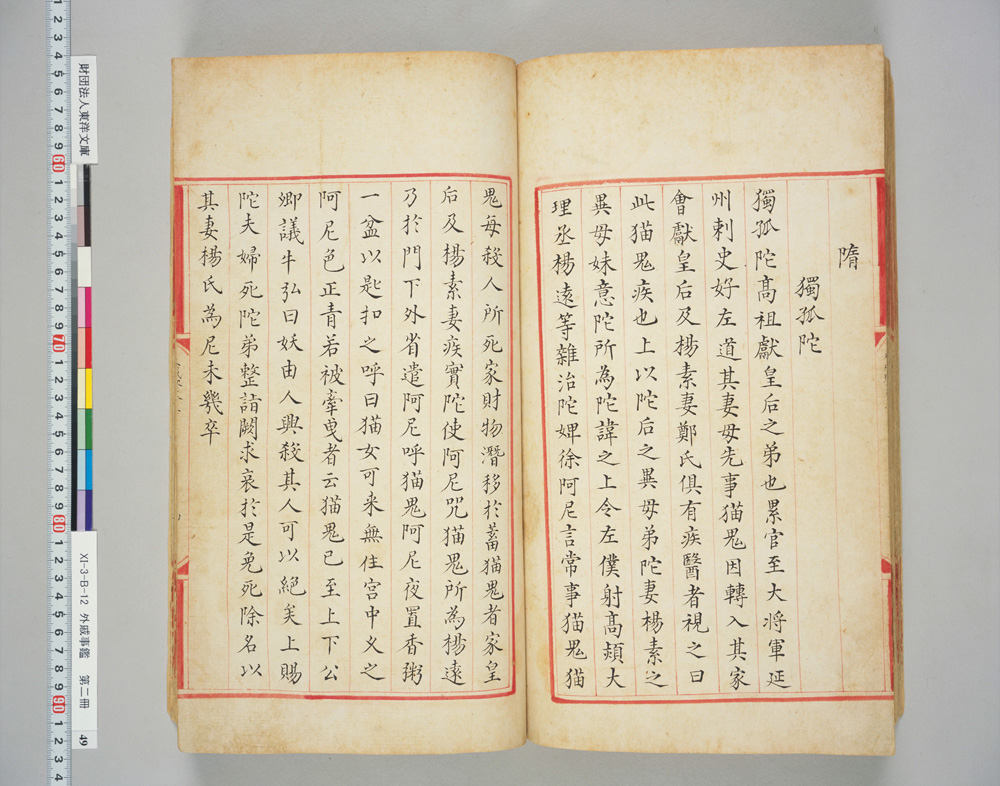 隋
獨孤陀
獨孤陀高祖獻皇后之弟也累官至大將軍延
州刺史好左道其妻母先事猫鬼因轉入其家
會獻皇后及楊素妻鄭氏俱有疾醫者視之曰
此猫鬼疾也上以陀后之異母弟陀妻楊素之
異母妹意陀所為陀諱之上令左僕射高熲大
理丞楊遠等雜治陀婢徐阿尼言常事猫鬼猫
鬼每殺人所死家財物潛移於蓄猫鬼者家皇
后及楊素妻疾實陀使阿尼咒猫鬼所為楊遠
乃於門下外省遣阿尼呼猫鬼阿尼夜置香粥
一盆以匙扣之呼曰猫女可来無住宮中乂之
阿尼色正青若被牽曳者云猫鬼已至上下公
卿議牛弘曰妖由人興殺其人可以絕矣上賜
陀夫婦死陀弟整詣闕求哀於是免死除名以
其妻楊氏為尼未幾卒
財団法人東洋文庫
XI-3-B-12 外戚事鑑 第二冊
49